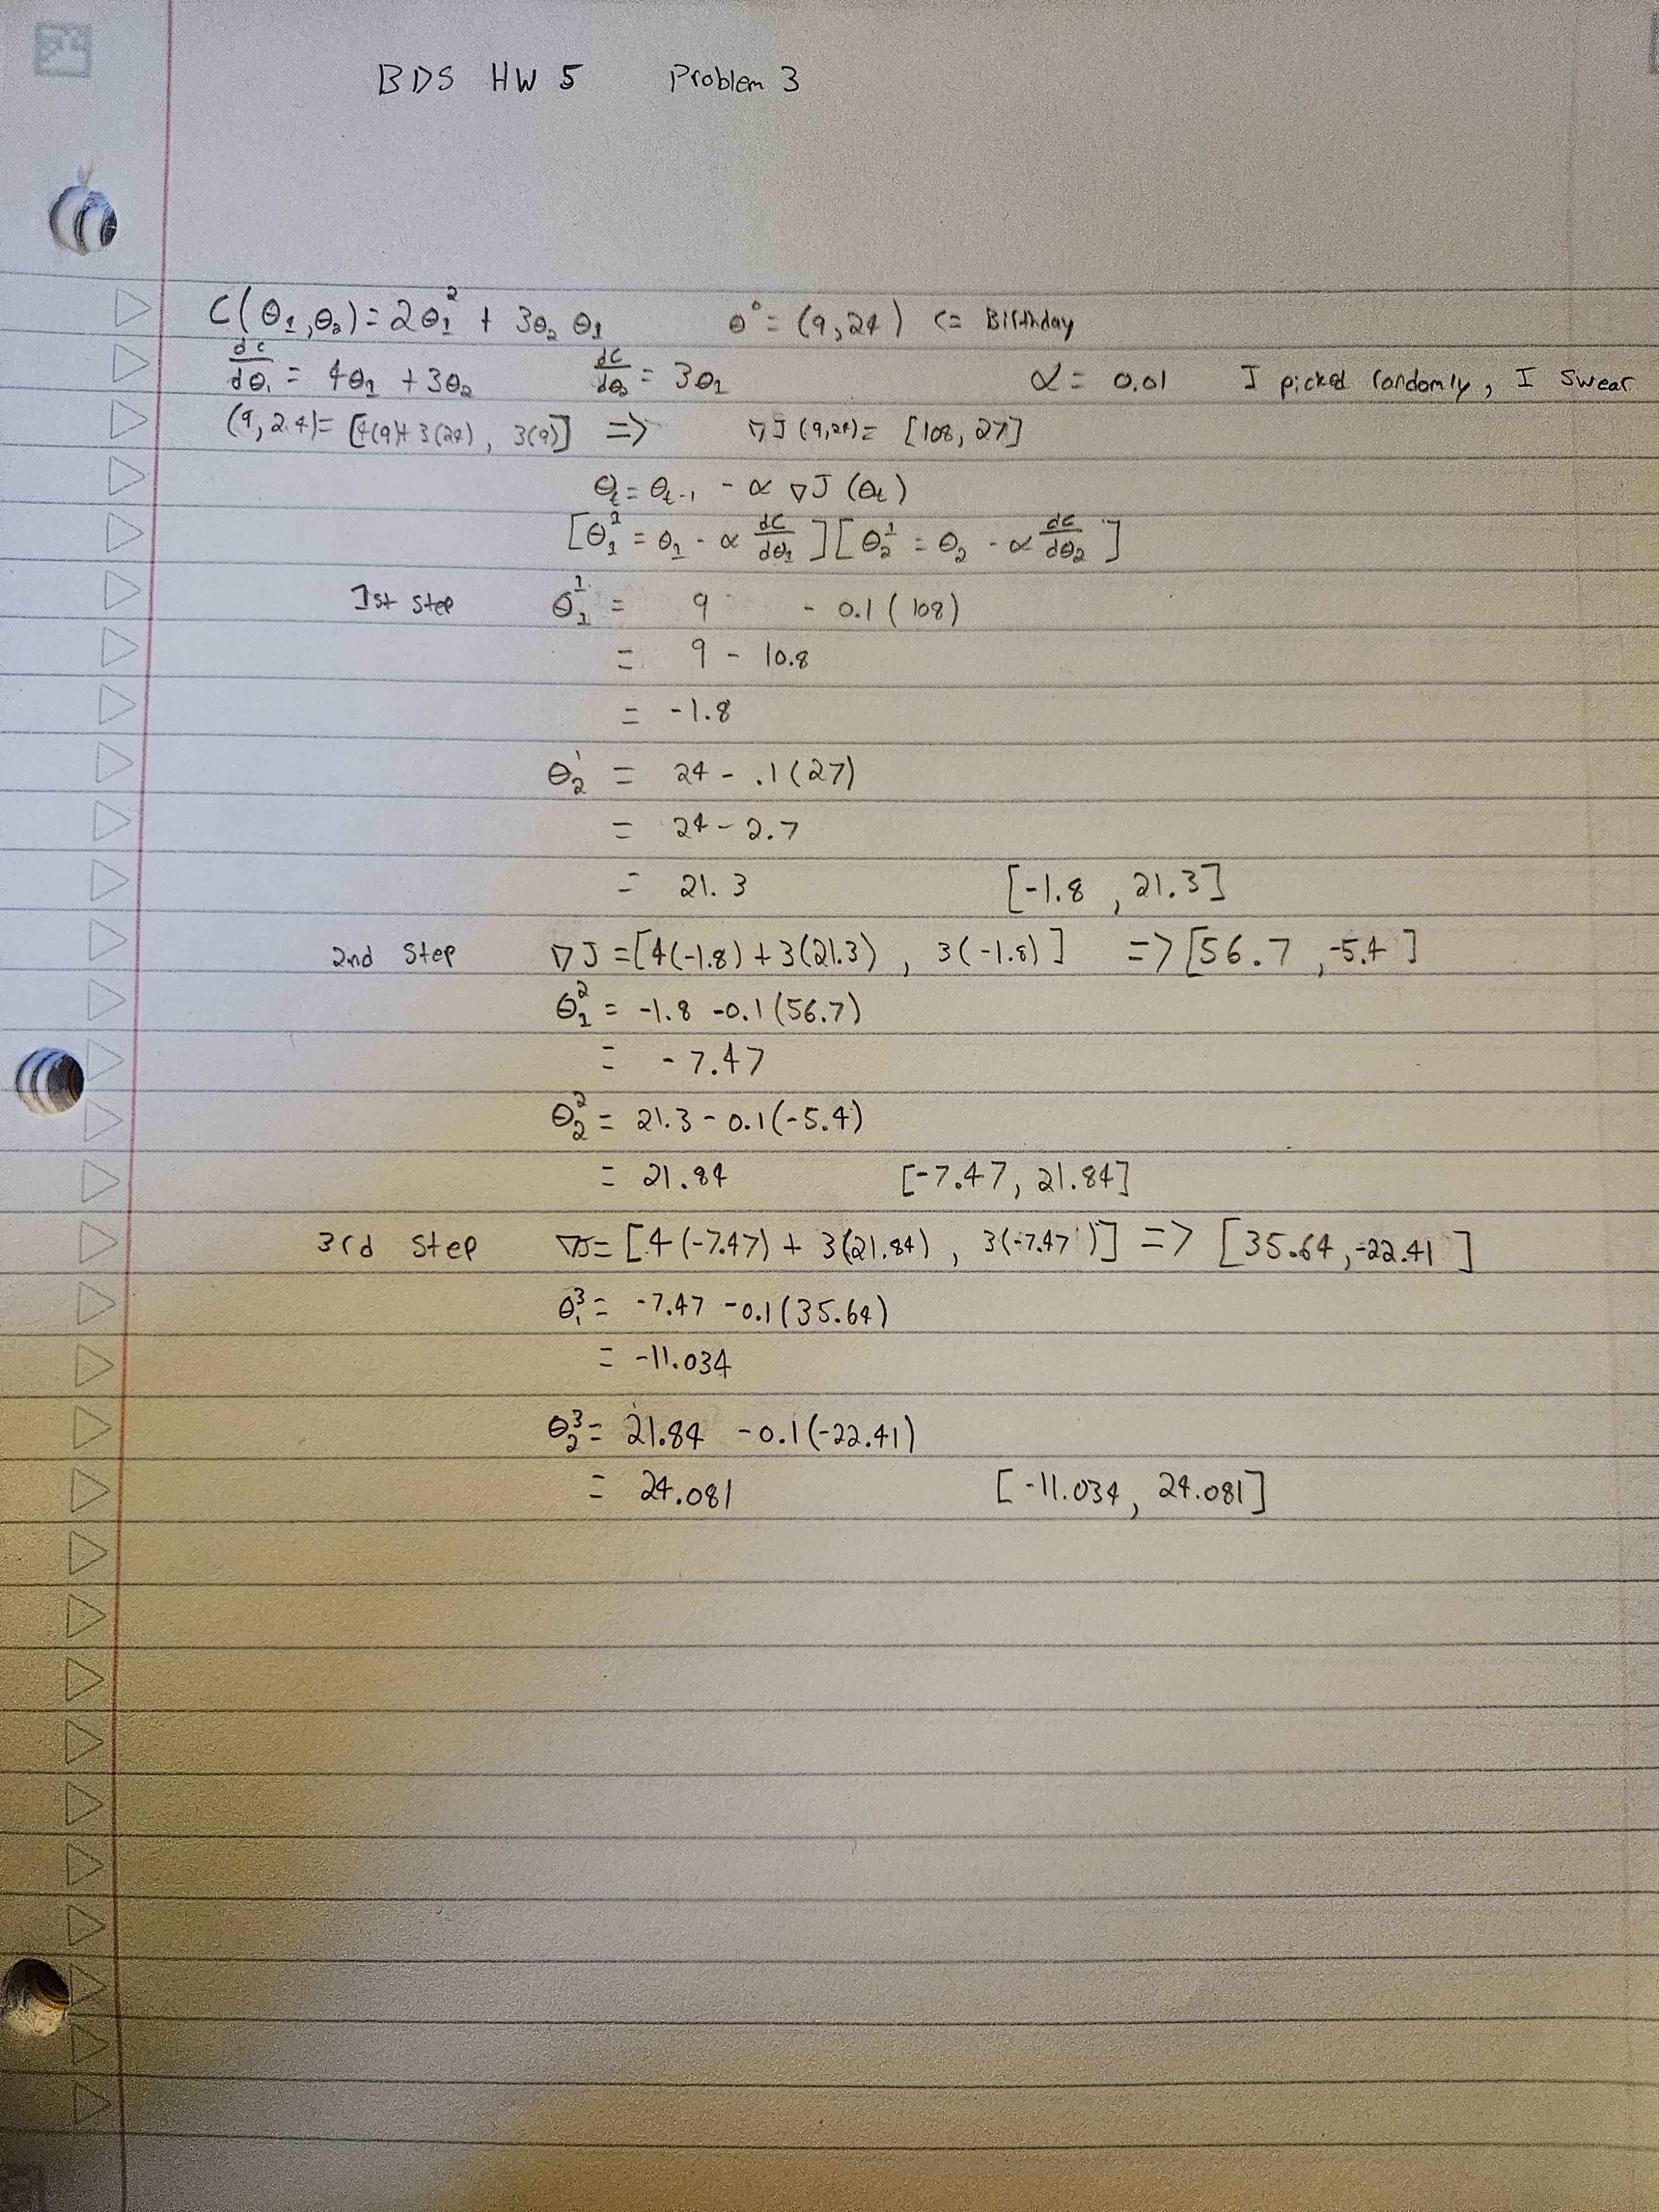 BDS HW 5 Problem 3
C(θ₁,θ₂)=2θ₁² + 3θ₂ θ₁ θ⁰=(9,24) <= Birthday
dc/dθ₁ = 4θ₁ + 3θ₂ dC/dθ₂ = 3θ₁ α = 0.01 I picked randomly, I Swear
(9,24)= [4(9)+3(24), 3(9)] => ∇J(9,24)= [108, 27]
θₜ=θₜ₋₁ - α ∇J(θₜ)
[θ₁¹ = θ₁ - α dC/dθ₁][θ₂¹ = θ₂ - α dC/dθ₂]
1st step θ₁¹ = 9 - 0.1(108)
= 9 - 10.8
= -1.8
θ₂¹ = 24 - .1(27)
= 24 - 2.7
= 21.3 [-1.8, 21.3]
2nd Step ∇J=[4(-1.8)+3(21.3), 3(-1.8)] =>[56.7, -5.4]
θ₁² = -1.8 -0.1(56.7)
= -7.47
θ₂² = 21.3 - 0.1(-5.4)
= 21.84 [-7.47, 21.84]
3rd Step ∇J=[4(-7.47)+3(21.84), 3(-7.47)] => [35.64, -22.41]
θ₁³ = -7.47 -0.1(35.64)
= -11.034
θ₂³ = 21.84 -0.1(-22.41)
= 24.081 [-11.034, 24.081]